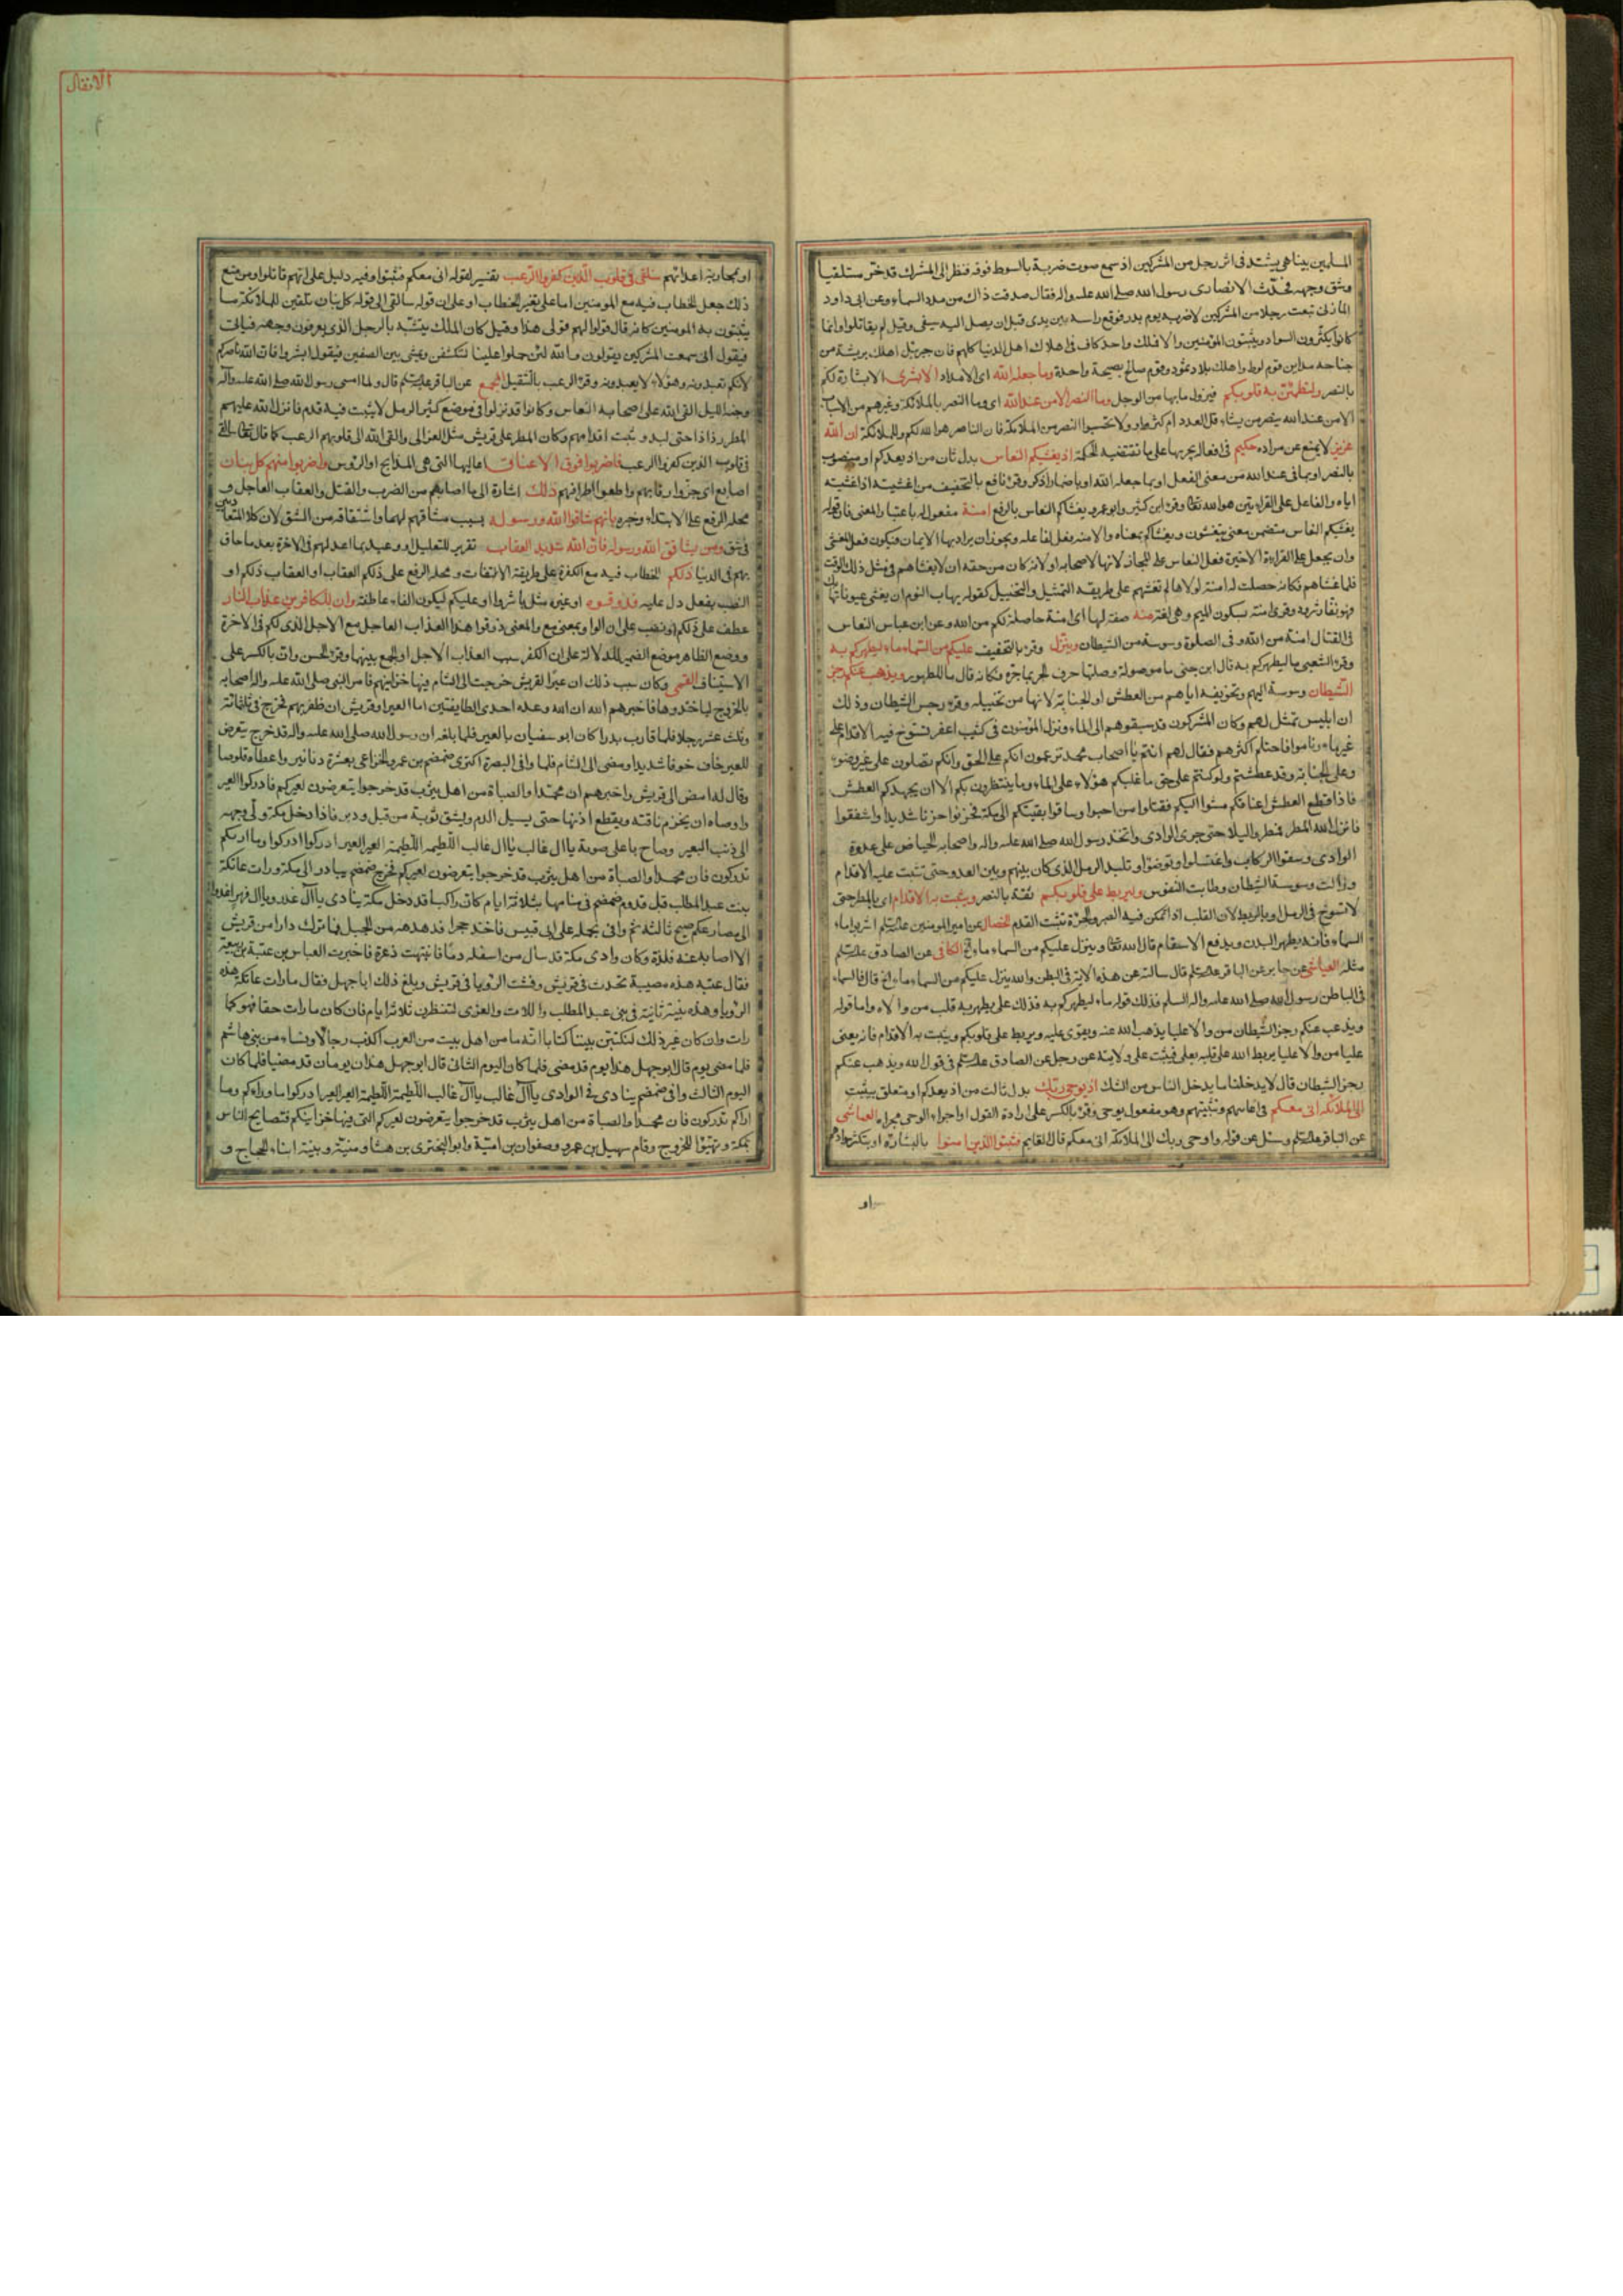 الانفال
المسلمين بينا هو يشتد فى اثر رجل من المشركين اذ سمع صوت ضربة بالسوط فوقه فنظر الى المشرك قد خر مستلقيا
وشق وجهه فحدث الانصارى رسول الله صلى الله عليه واله فقال صدقت ذاك من مدد السماء وعن ابى داود
المازنى تبعت رجلا من المشركين لاضربه يوم بدر فوقع راسه بين يدى قبل ان يصل اليه سيفى وقيل لم يقاتلوا وانما
كانوا يكثرون السواد ويثبتون المؤمنين والا فملك واحد كاف فى اهلاك اهل الدنيا كلهم فان جبرئيل اهلك بريشة من
جناحه مداين قوم لوط واهلك بلاد ثمود وقوم صالح بصيحة واحدة وما جعله الله اى الامداد الا بشرى الا بشارة لكم
بالنصر ولتطمئن به قلوبكم فيزول ما بها من الوجل وما النصر الا من عند الله اى وما النصر بالملائكة وغيرهم من الاسباب
الا من عند الله ينصر من يشاء قل العدد ام كثر ولا تحسبوا النصر من الملائكة فان الناصر هو الله لكم وللملائكة ان الله
عزيز لا يمنع عن مراده حكيم فى افعاله يجريها على ما تقتضيه الحكمة اذ يغشيكم النعاس بدل ثان من اذ يعدكم او منصوب
بالنصر او بما فى عند الله من معنى الفعل او بما جعله الله او باضمار اذكر وقرء نافع بالتخفيف من اغشيته اذا غشيته
اياه والفاعل على القراءتين هو الله تعالى وقرء ابن كثير وابو عمرو يغشاكم النعاس بالرفع امنة مفعول له باعتبار المعنى فان قوله
يغشيكم النعاس متضمن معنى تنعسون ويغشاكم بمعناه والامنة فعل لفاعله ويجوز ان يراد بها الايمان فيكون فعل المغشى
وان يجعل على القراءة الاخيرة فعل النعاس على المجاز لانها لاصحابه او لانه كان من حقه ان لا يغشاهم فى مثل ذلك الوقت
فلما غشاهم فكانه حصلت له امنة لولاها لم تغشهم على طريقة التمثيل والتخييل كقوله يهاب النوم ان يغشى عيونا تهابك
فهو نفار شرود وقرى امنة بسكون الميم وهى لغة منه صفة لها اى امنة حاصلة لكم من الله وعن ابن عباس النعاس
فى القتال امنة من الله وفى الصلوة وسوسة من الشيطان وينزل وقرء بالتخفيف عليكم من السماء ماء ليطهركم به
وقرء الشعبى ما ليطهركم به قال ابن جنى ما موصولة وصلتها حرف الجر بما جره فكانه قال ما للطهور ويذهب عنكم رجز
الشيطان وسوسة اليهم وتخويفه اياهم من العطش او الجنابة لانها من تخييله وقرء رجس الشيطان وذلك
ان ابليس تمثل لهم وكان المشركون قد سبقوهم الى الماء ونزل المؤمنون فى كثيب اعفر تسوخ فيه الاقدام على
غير ماء وناموا فاحتلم اكثرهم فقال لهم انتم يا اصحاب محمد تزعمون انكم على الحق وانكم تصلون على غير وضوء
وعلى الجنابة وقد عطشتم ولو كنتم على حق ما غلبكم هؤلاء على الماء وما ينتظرون بكم الا ان يجهدكم العطش
فاذا قطع العطش اعناقكم مشوا اليكم فقتلوا من احبوا وساقوا بقيتكم الى مكة فحزنوا حزنا شديدا واشفقوا
فانزل الله المطر فمطروا ليلا حتى جرى الوادى واتخذ رسول الله صلى الله عليه واله واصحابه الحياض على عدوة
الوادى وسقوا الركاب واغتسلوا وتوضؤا وتلبد الرمل الذى كان بينهم وبين العدو حتى تثبت عليه الاقدام
وزالت وسوسة الشيطان وطابت النفوس وليربط على قلوبكم ثقة بالنصر ويثبت به الاقدام اى بالمطر حتى
لا تسوخ فى الرمل او بالربط لان القلب اذا تمكن فيه الصبر والجرءة تثبت القدم الخصال عن امير المؤمنين عليه السلم اشربوا ماء
السماء فانه يطهر البدن ويدفع الاسقام قال الله تعالى وينزل عليكم من السماء ماء الخ الكافى عن الصادق عليه السلم
مثله العياشى عن جابر عن الباقر عليه السلم قال سالته عن هذه الاية فى البطن والله ينزل عليكم من السماء ماء الخ قال السماء
فى الباطن رسول الله صلى الله عليه واله السلم فذلك قوله ماء ليطهركم به فذلك على يطهر به قلب من والاه واما قوله
ويذهب عنكم رجز الشيطان من والا عليا يذهب الله عنه ويقوى عليه ويربط على قلوبكم ويثبت به الاقدام فانه يعنى
عليا من والا عليا يربط الله على قلبه بعلى فيثبت على ولايته عن رجل عن الصادق عليه السلم فى قول الله ويذهب عنكم
رجز الشيطان قال لا يدخلنا ما يدخل الناس من الشك اذ يوحى ربك بدل ثالث من اذ يعدكم او متعلق بيثبت
الى الملائكة انى معكم فى اعانتهم وتثبيتهم وهو مفعول يوحى وقرء بالكسر على ارادة القول او اجراء الوحى مجراه العياشى
عن الباقر عليه السلم وسئل عن قوله واوحى ربك الى الملائكة انى معكم قال القايم فثبتوا الذين امنوا بالبشارة او بتكثير سوادهم
او
او بمحاربة اعدائهم سالقى فى قلوب الذين كفروا الرعب تفسير لقوله انى معكم فثبتوا وفيه دليل على انهم قاتلوا ومن منع
ذلك جعل الخطاب فيه مع المؤمنين اما على تغيير الخطاب او على ان قوله سالقى الى قوله كل بنان تلقين للملائكة ما
يثبتون به المؤمنين كانه قال قولوا لهم قولى هذا وقيل كان الملك يتشبه بالرجل الذى يعرفون وجهه فياتى
فيقول انى سمعت المشركين يقولون والله لئن حملوا علينا لننكشفن ويمشى بين الصفين فيقول ابشروا فان الله ناصركم
لانكم تعبدونه وهؤلاء لا يعبدونه وقرء الرعب بالتثقيل المجمع عن الباقر عليه السلم قال ولما امسى رسول الله صلى الله عليه واله
وجنه الليل القى الله على اصحابه النعاس وكانوا قد نزلوا فى موضع كثير الرمل لا يثبت فيه قدم فانزل الله عليهم
المطر رذاذا حتى لبد وثبت اقدامهم وكان المطر على قريش مثل العزالى والقى الله الى قلوبهم الرعب كما قال تعالى سالقى
فى قلوب الذين كفروا الرعب فاضربوا فوق الاعناق اعاليها التى هى المذابح او الرؤس واضربوا منهم كل بنان
اصابع اى جزوا رقابهم واقطعوا اطرافهم ذلك اشارة الى ما اصابهم من الضرب والقتل والعقاب العاجل و
محله الرفع على الابتداء وخبره بانهم شاقوا الله ورسوله بسبب مشاقتهم لهما واشتقاقه من الشق لان كلا المتعاديين
فى شق ومن يشاقق الله ورسوله فان الله شديد العقاب تقرير للتعليل او وعيد بما اعد لهم فى الاخرة بعد ما حاق
بهم فى الدنيا ذلكم الخطاب فيه مع الكفرة على طريقة الالتفات ومحله الرفع على ذلكم العقاب او العقاب ذلكم او
النصب بفعل دل عليه فذوقوه او غيره مثل باشروا او عليكم ليكون الفاء عاطفة وان للكافرين عذاب النار
عطف على ذلكم او نصب على ان الواو بمعنى مع والمعنى ذوقوا هذا العذاب العاجل مع الاجل الذى لكم فى الاخرة
ووضع الظاهر موضع الضمير للدلالة على ان الكفر سبب العذاب الاجل او الجمع بينهما وقرء الحسن وان بالكسر على
الاستيناف القمى وكان سبب ذلك ان عيرا لقريش خرجت الى الشام فيها خزاينهم فامر النبى صلى الله عليه واله اصحابه
بالخروج لياخذوها فاخبرهم الله ان الله وعده احدى الطايفتين اما العير او قريش ان ظفر بهم فخرج فى ثلثمائة
وثلث عشر رجلا فلما قارب بدرا كان ابو سفيان بالعير فلما بلغه ان رسول الله صلى الله عليه واله قد خرج يتعرض
للعير خاف خوفا شديدا ومضى الى الشام فلما وافى البصرة اكترى ضمضم بن عمرو الخزاعى بعشرة دنانير واعطاه قلوصا
وقال له امض الى قريش واخبرهم ان محمدا والصباة من اهل يثرب قد خرجوا يتعرضون لعيركم فادركوا العير
واوصاه ان يخرم ناقته ويقطع اذنها حتى يسيل الدم ويشق ثوبه من قبل ودبر فاذا دخل مكة ولى وجهه
الى ذنب البعير وصاح باعلى صوته يا ال غالب يا ال غالب اللطيمة اللطيمة العير العير ادركوا ادركوا وما اريكم
تدركون فان محمدا والصباة من اهل يثرب قد خرجوا يتعرضون لعيركم فخرج ضمضم يبادر الى مكة ورات عاتكة
بنت عبد المطلب قبل قدوم ضمضم فى منامها بثلاثة ايام كان راكبا قد دخل مكة ينادى يا ال غدر ويا ال فهر اغدوا
الى مصارعكم صبح ثالثة ثم وافى بجمله على ابى قبيس فاخذ حجرا قد هدهه من الجبل فما ترك دارا من قريش
الا اصابه منه فلذة وكان وادى مكة قد سال من اسفله دما فانتبهت ذعرة فاخبرت العباس بن عتبة بن ربيعة
فقال عتبه هذه مصيبة تحدث فى قريش وفشت الرؤيا فى قريش وبلغ ذلك ابا جهل فقال ما رات عاتكة هذه
الرؤيا وهذه نبية ثانية فى بنى عبد المطلب واللات والعزى لننتظرن ثلاثة ايام فان كان ما رات حقا فهو كما
رات وان كان غير ذلك لنكتبن بيننا كتابا انه ما من اهل بيت من العرب اكذب رجالا ونساء من بنى هاشم
فلما مضى يوم قال ابو جهل هذا يوم قد مضى فلما كان اليوم الثانى قال ابو جهل هذان يومان قد مضيا فلما كان
اليوم الثالث وافى ضمضم ينادى فى الوادى يا ال غالب يا ال غالب اللطيمة اللطيمة العير العير ادركوا وما اراكم وما
اراكم تدركون فان محمدا والصباة من اهل يثرب قد خرجوا يتعرضون لعيركم التى فيها خزاينكم فتصايح الناس
بمكة وتهيؤا للخروج وقام سهيل بن عمرو وصفوان بن امية وابو البخترى بن هشام ومنبه ونبيه ابناء الحجاج و